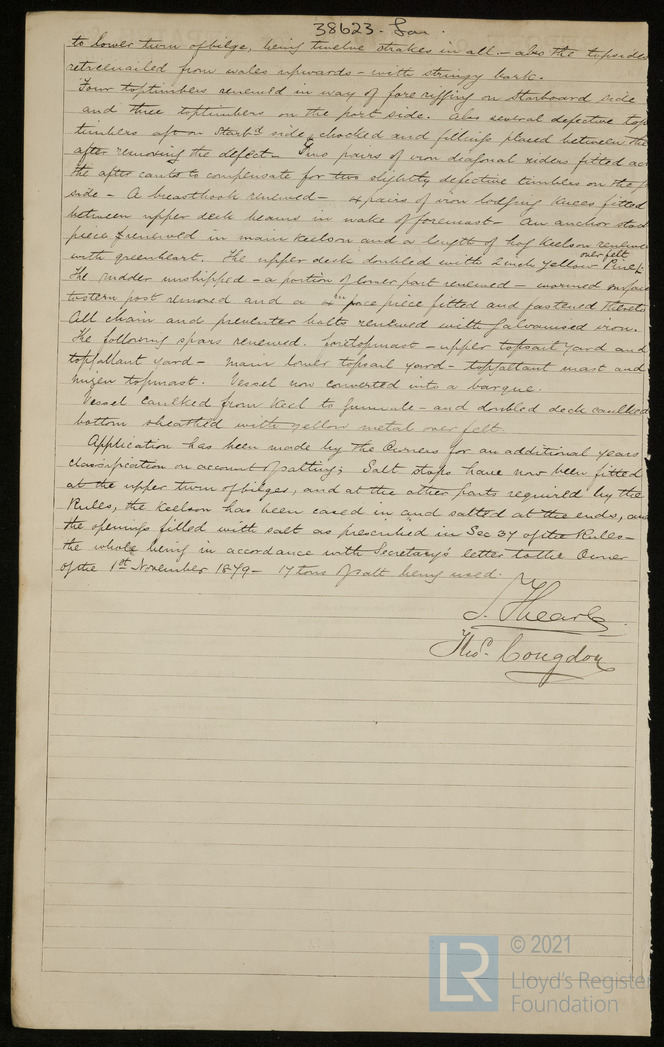 38623. Lon.
to lower turn of bilge, being twelve strakes in all – also the topsides
retreenailed from wales upwards – with stringy bark.
Four toptimbers renewed in way of fore rigging on Starboard side
and three toptimbers on the port side. Also several defective top
timbers aft on Starbd side, chocked and fillings placed between the
after removing the defect – Two pairs of iron diagonal riders fitted
the after cants to compensate for two slightly defective timbers on the
side – A breasthook renewed – 4 pairs of iron lodging knees fitted
between upper deck beams in wake of foremast – An anchor stock
piece renewed in main keelson and a length of hog keelson renewed
with greenheart. The upper deck doubled with 2 inch yellow Pine over felt.
The rudder unshipped – a portion of lower part renewed – wormed
to stern post removed and a 4in face piece fitted and fastened thereto
All chain and preventer bolts renewed with Galvanised iron.
The following spars renewed. Foretopmast – upper topsail yard and
topgallant yard – main lower topsail yard – topgallant mast and
mizen topmast. Vessel now converted into a barque.
Vessel caulked from keel to gunwale – and doubled deck caulked
bottom sheathed with yellow metal over felt.
Application has been made by the Owners for an additional years
classification on account of salting; Salt stops have now been fitted
at the upper turn of bilges, and at the other parts required by the
Rules, the keelson has been cased in and salted at the ends, and
the openings filled with salt as prescribed in Sec 37 of the Rules –
the whole being in accordance with Secretary's letter to the Owner
of the 1st November 1879 – 17 tons of salt being used.
J. Hearle
Thos. Congdon
LR
© 2021
Lloyd's Register
Foundation